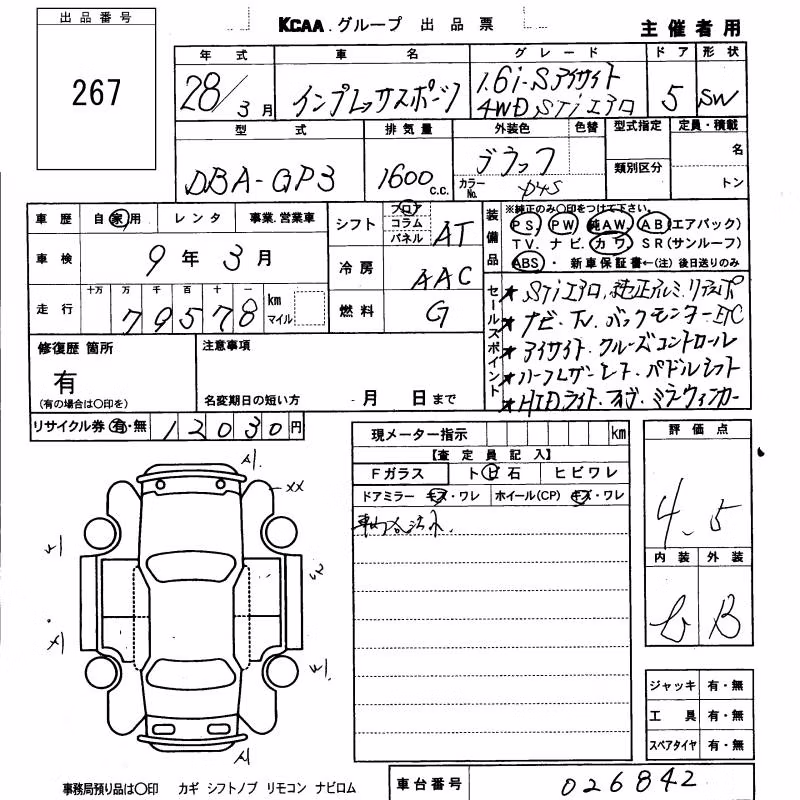 出品番号
267
KCAA.グループ 出品票
主催者用
年式 車名 グレード ドア 形状
28/3月 インプレッサスポーツ 1.6i-Sアイサイト 5 SW
4WD STiエアロ
型式 排気量 外装色 色替 型式指定 定員・積載
DBA-GP3 1600c.c. ブラック 名
カラーNo. D4S 類別区分 トン
車歴 自家用 レンタ 事業.営業車
シフト フロア コラム パネル AT
装備品 ※純正のみ〇印をつけて下さい。
PS, PW 純AW. AB(エアバック)
TV. ナビ. カワ SR(サンルーフ)
ABS ・ 新車保証書←(注)後日送りのみ
車検 9年3月
冷房 AAC
走行 十万 万 千 百 十 一
79578 km マイル
燃料 G
セールスポイント
★STiエアロ.純正アルミ.リアスポ
★ナビ.TV.バックモニターETC
★アイサイト.クルーズコントロール
★ハーフレザーシート.パドルシフト
★HIDライト.フォグ.ミラーウィンカー
修復歴 箇所
有
(有の場合は〇印を)
注意事項
名変期日の短い方 月 日まで
リサイクル券 有・無 12030円
現メーター指示 km
評価点
4.5
【査定員記入】
Fガラス トビ石 ヒビワレ
ドアミラー キズ・ワレ ホイール(CP) キズ・ワレ
内装 外装
B
ジャッキ 有・無
工具 有・無
スペアタイヤ 有・無
xx
事務局預り品は〇印 カギ シフトノブ リモコン ナビロム
車台番号 026842